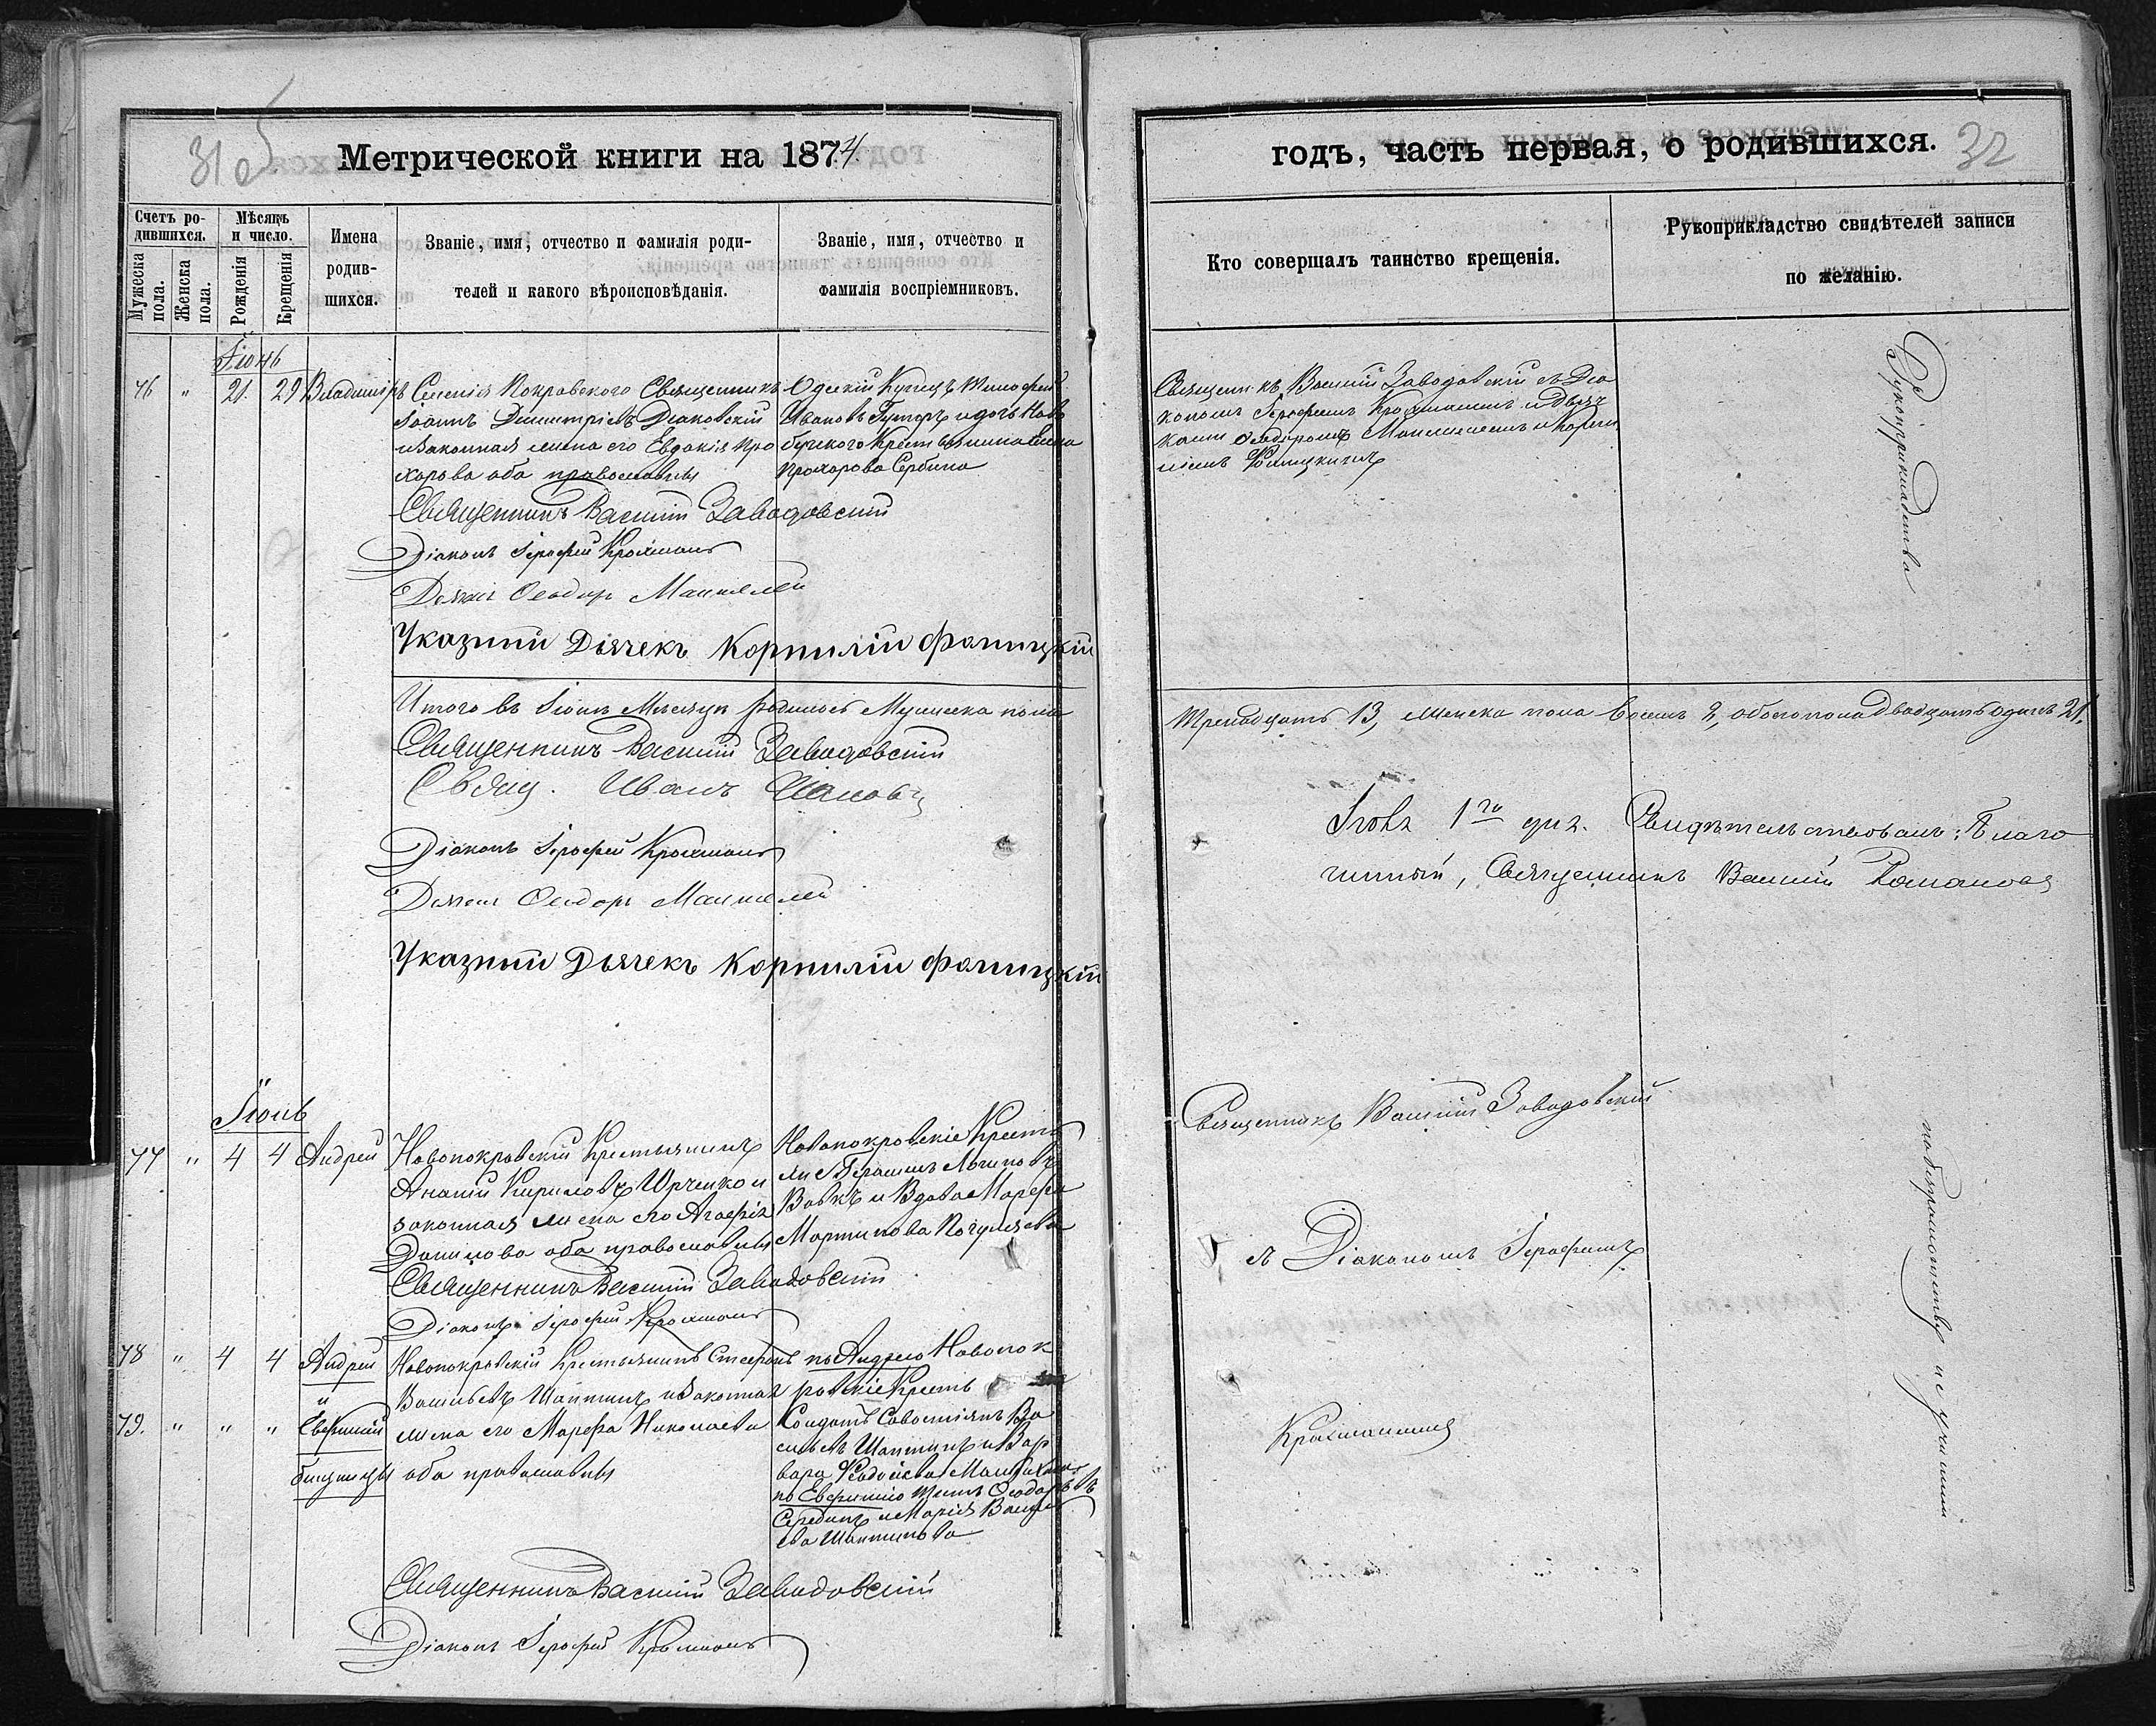 31 об
Метрической книги на 1874
Счетъ ро-
дившихся.
Мужеска
пола.
Женска
пола.
Мѣсяцъ
и число.
Рожденія
Крещенія
Имена
родив-
шихся.
Званіе, имя, отчество и фамилія роди-
телей и какого вѣроисповѣданія.
Званіе, имя, отчество и
фамилія воспріемниковъ.
Іюнь
76 " 21. 29 Владиміръ
Селенія Покровского Священникъ
Іоаннъ Димитріевъ Діаковскій
и законная жена его Евдокія Про
хорова оба православны
Одескій Купецъ Тимофей
Ивановъ
Прохорова Сербина
Священникъ Василій Заводовскій
Діаконъ Іерофей Крохмаль
Дьякъ Ѳеодоръ
Указный Дьячекъ Корнилій Фолицкій
Итого въ Іюнѣ Месяцѣ родилось Мужеска пола
Священникъ Василій Заводовскій
Свящ. Иванъ
Діаконъ Іерофей Крохмаль
Дьякъ Ѳеодоръ
Указный Дьячекъ Корнилій Фолицкій
Іюль
77 " 4 4 Андрей
Новопокровскій Крестьянинъ
Ананій Кириловъ Юрченко и
законная жена его Агафія
Данилова оба православны
Новопокровскіе Кресть
яне Герасимъ Логиновъ
Вовкъ и Вдова Марфа
Мартинова
Священникъ Василій Заводовскій
Діаконъ Іерофей Крохмаль
78 " 4 4 Андрей
и
79. " " " Евфимій
близнецы
Новопокровскій Крестьянинъ Стефанъ
Васильевъ Шаптинъ и законная
жена его Марфа Николаева
оба православны
по Андрею Новопок
ровскіе Кресть
Солдатъ Савостіянъ Ва
сильевъ Шаптинъ и Вар
вара
по Евфимію Ѳеодоровъ
Серединъ и Марія Василь
ева Шаптинова
Священникъ Василій Заводовскій
Діаконъ Іерофей Крохмаль
годъ, часть первая, о родившихся.
32
Кто совершалъ таинство крещенія.
Рукоприкладство свидѣтелей записи
по желанію.
Священникъ Василій Заводовскій съ Діа
кономъ Іерофеемъ Крохмалемъ и дьяч
ками Ѳеодоромъ и Корни
ліемъ Фолицкимъ
Рукоприкладства
Тринадцать 13, женска пола восемь 8, обоего пола двадцать одинъ 21.
Іюля 1го дня. Свидѣтельствовалъ: Благо
чинный, Священникъ Василій Романовъ
Священникъ Василій Заводовскій
съ Діакономъ Іерофеемъ
Крохмалемъ
по безграмотству не учинили